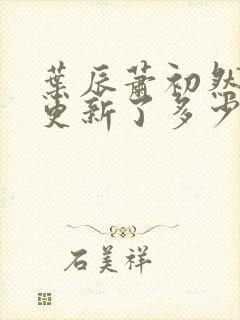 葉辰蕭初然
更新了多少
石美祥